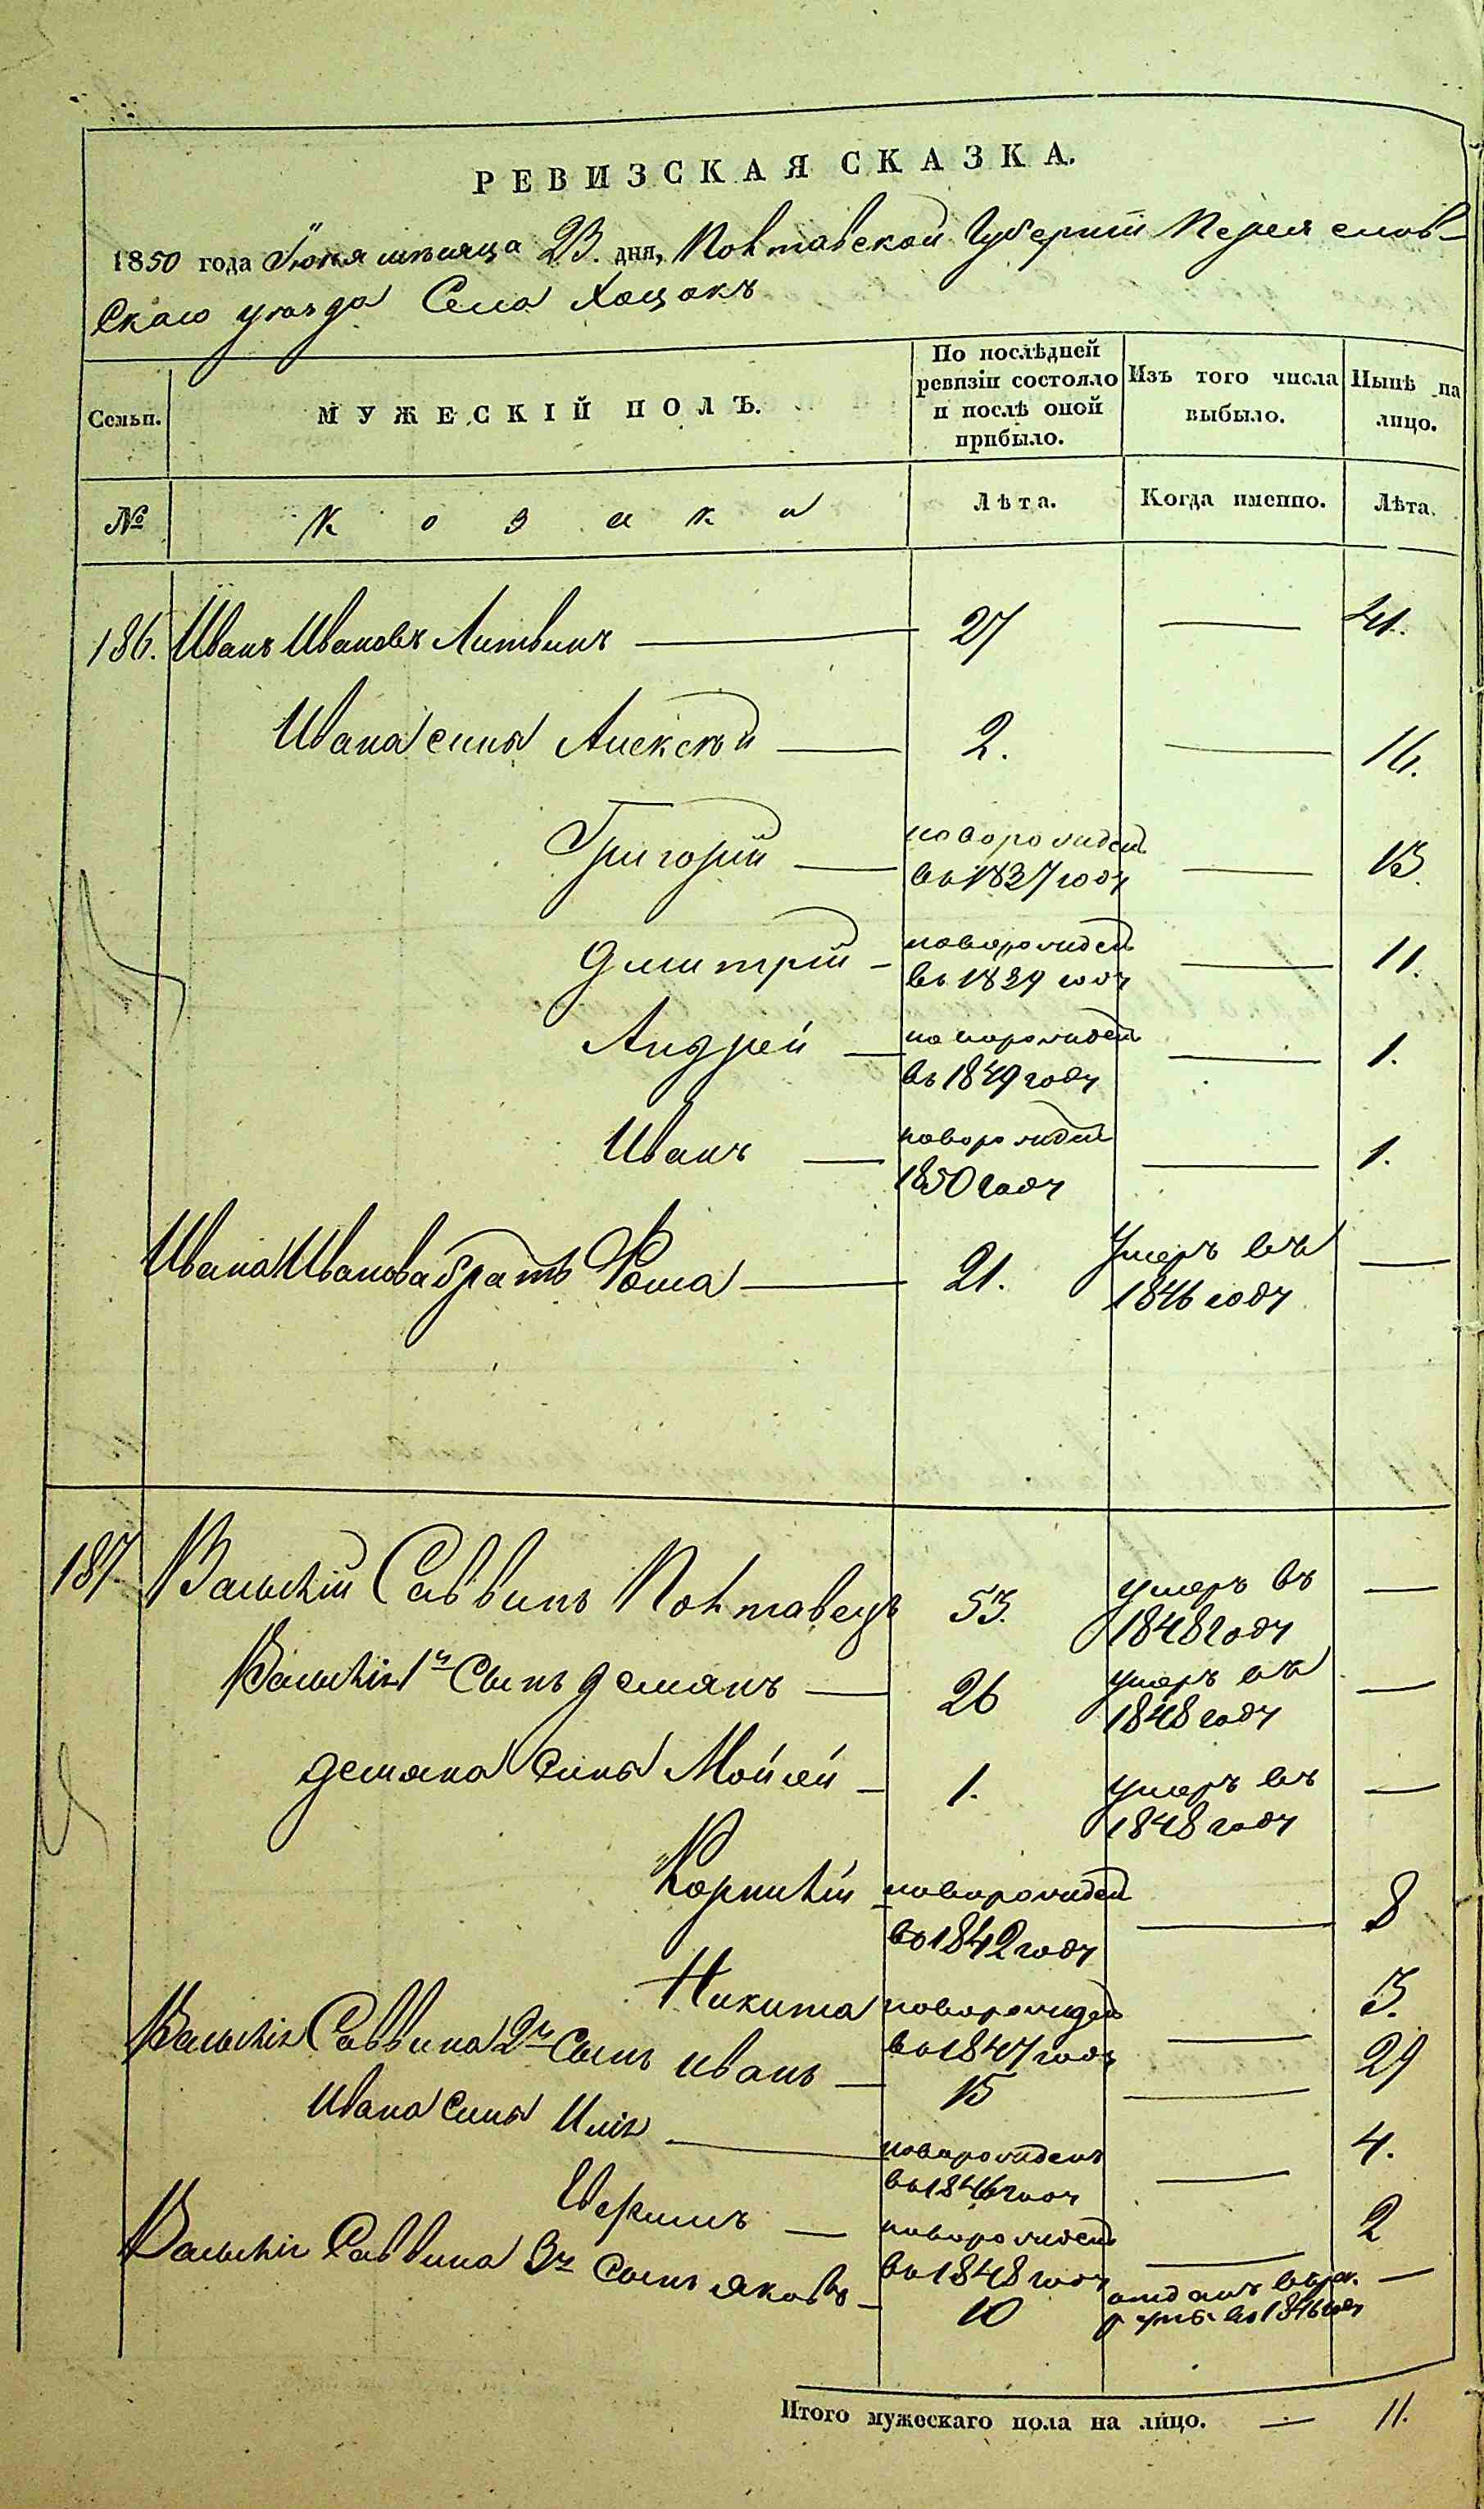 РЕВИЗСКАЯ СКАЗКА.
1850 года Іюня мѣсяца 23. дня, Полтавской Губерніи Переяслов-
скаго уѣзда Села Хоцокъ
Семьи. МУЖЕСКІЙ ПОЛЪ. По послѣдней ревизіи состояло и послѣ оной прибыло. Изъ того числа выбыло. Нынѣ на лицо.
№ Козаки Лѣта. Когда именно. Лѣта.
186. Иванъ Ивановъ Литвинъ — 27 — 41.
Ивана сины Алексѣй — 2. — 16.
Григорій — новорожден
въ 1837 году — 13.
Дмитрій — новорожден
въ 1839 году — 11.
Андрей — новорожден
въ 1849 году — 1.
Иванъ — новорожден
1850 году — 1.
Ивана Иванова братъ Фома — 21. Умеръ въ —
1846 году
187. Василій Саввинъ Полтавецъ 53. умеръ въ —
1848 году
Василія 1й Сынъ Демянъ — 26 умеръ въ —
1848 году
Демяна Сины Мойсей — 1. умеръ въ —
1848 году
Корнилій — новорожден
въ 1842 году — 8
Никита новорожден
въ 1847 году — 3.
Василія Саввина 2й Сынъ Иванъ — 15 — 29
Ивана Сины Илія — новорожденъ
въ 1846 году — 4.
— новорожден
въ 1848 году — 2
Василія Саввина 3й Сынъ Яковъ — 10 отданъ въ рек- —
руты въ 1846 году
Итого мужескаго пола на лицо. — 11.